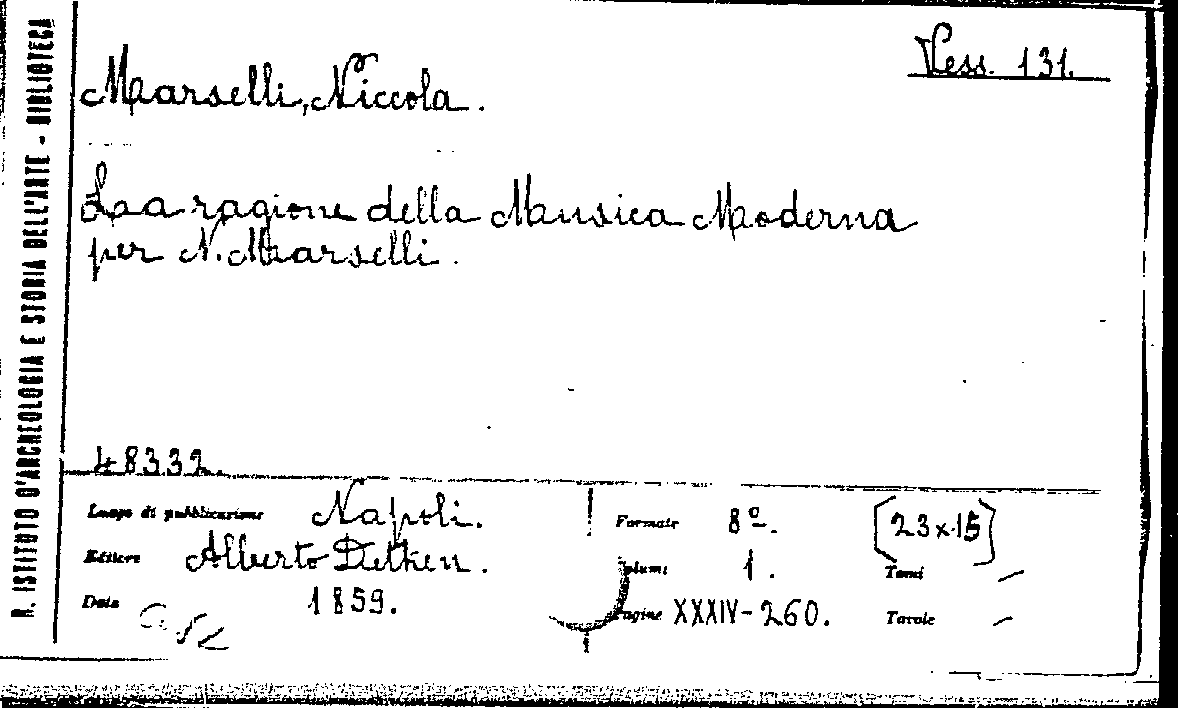 R. ISTITUTO D'ARCHEOLOGIA E STORIA DELL'ARTE - BIBLIOTECA
Vess. 131.
Marselli, Niccola.
La ragione della Musica Moderna
per N. Marselli.
48332.
Luogo di pubblicazione Napoli.
Formato 8º. [23x15]
Editore Alberto Detken.
Volumi 1. Tomi —
Data 1859.
Pagine XXXIV-260. Tavole —